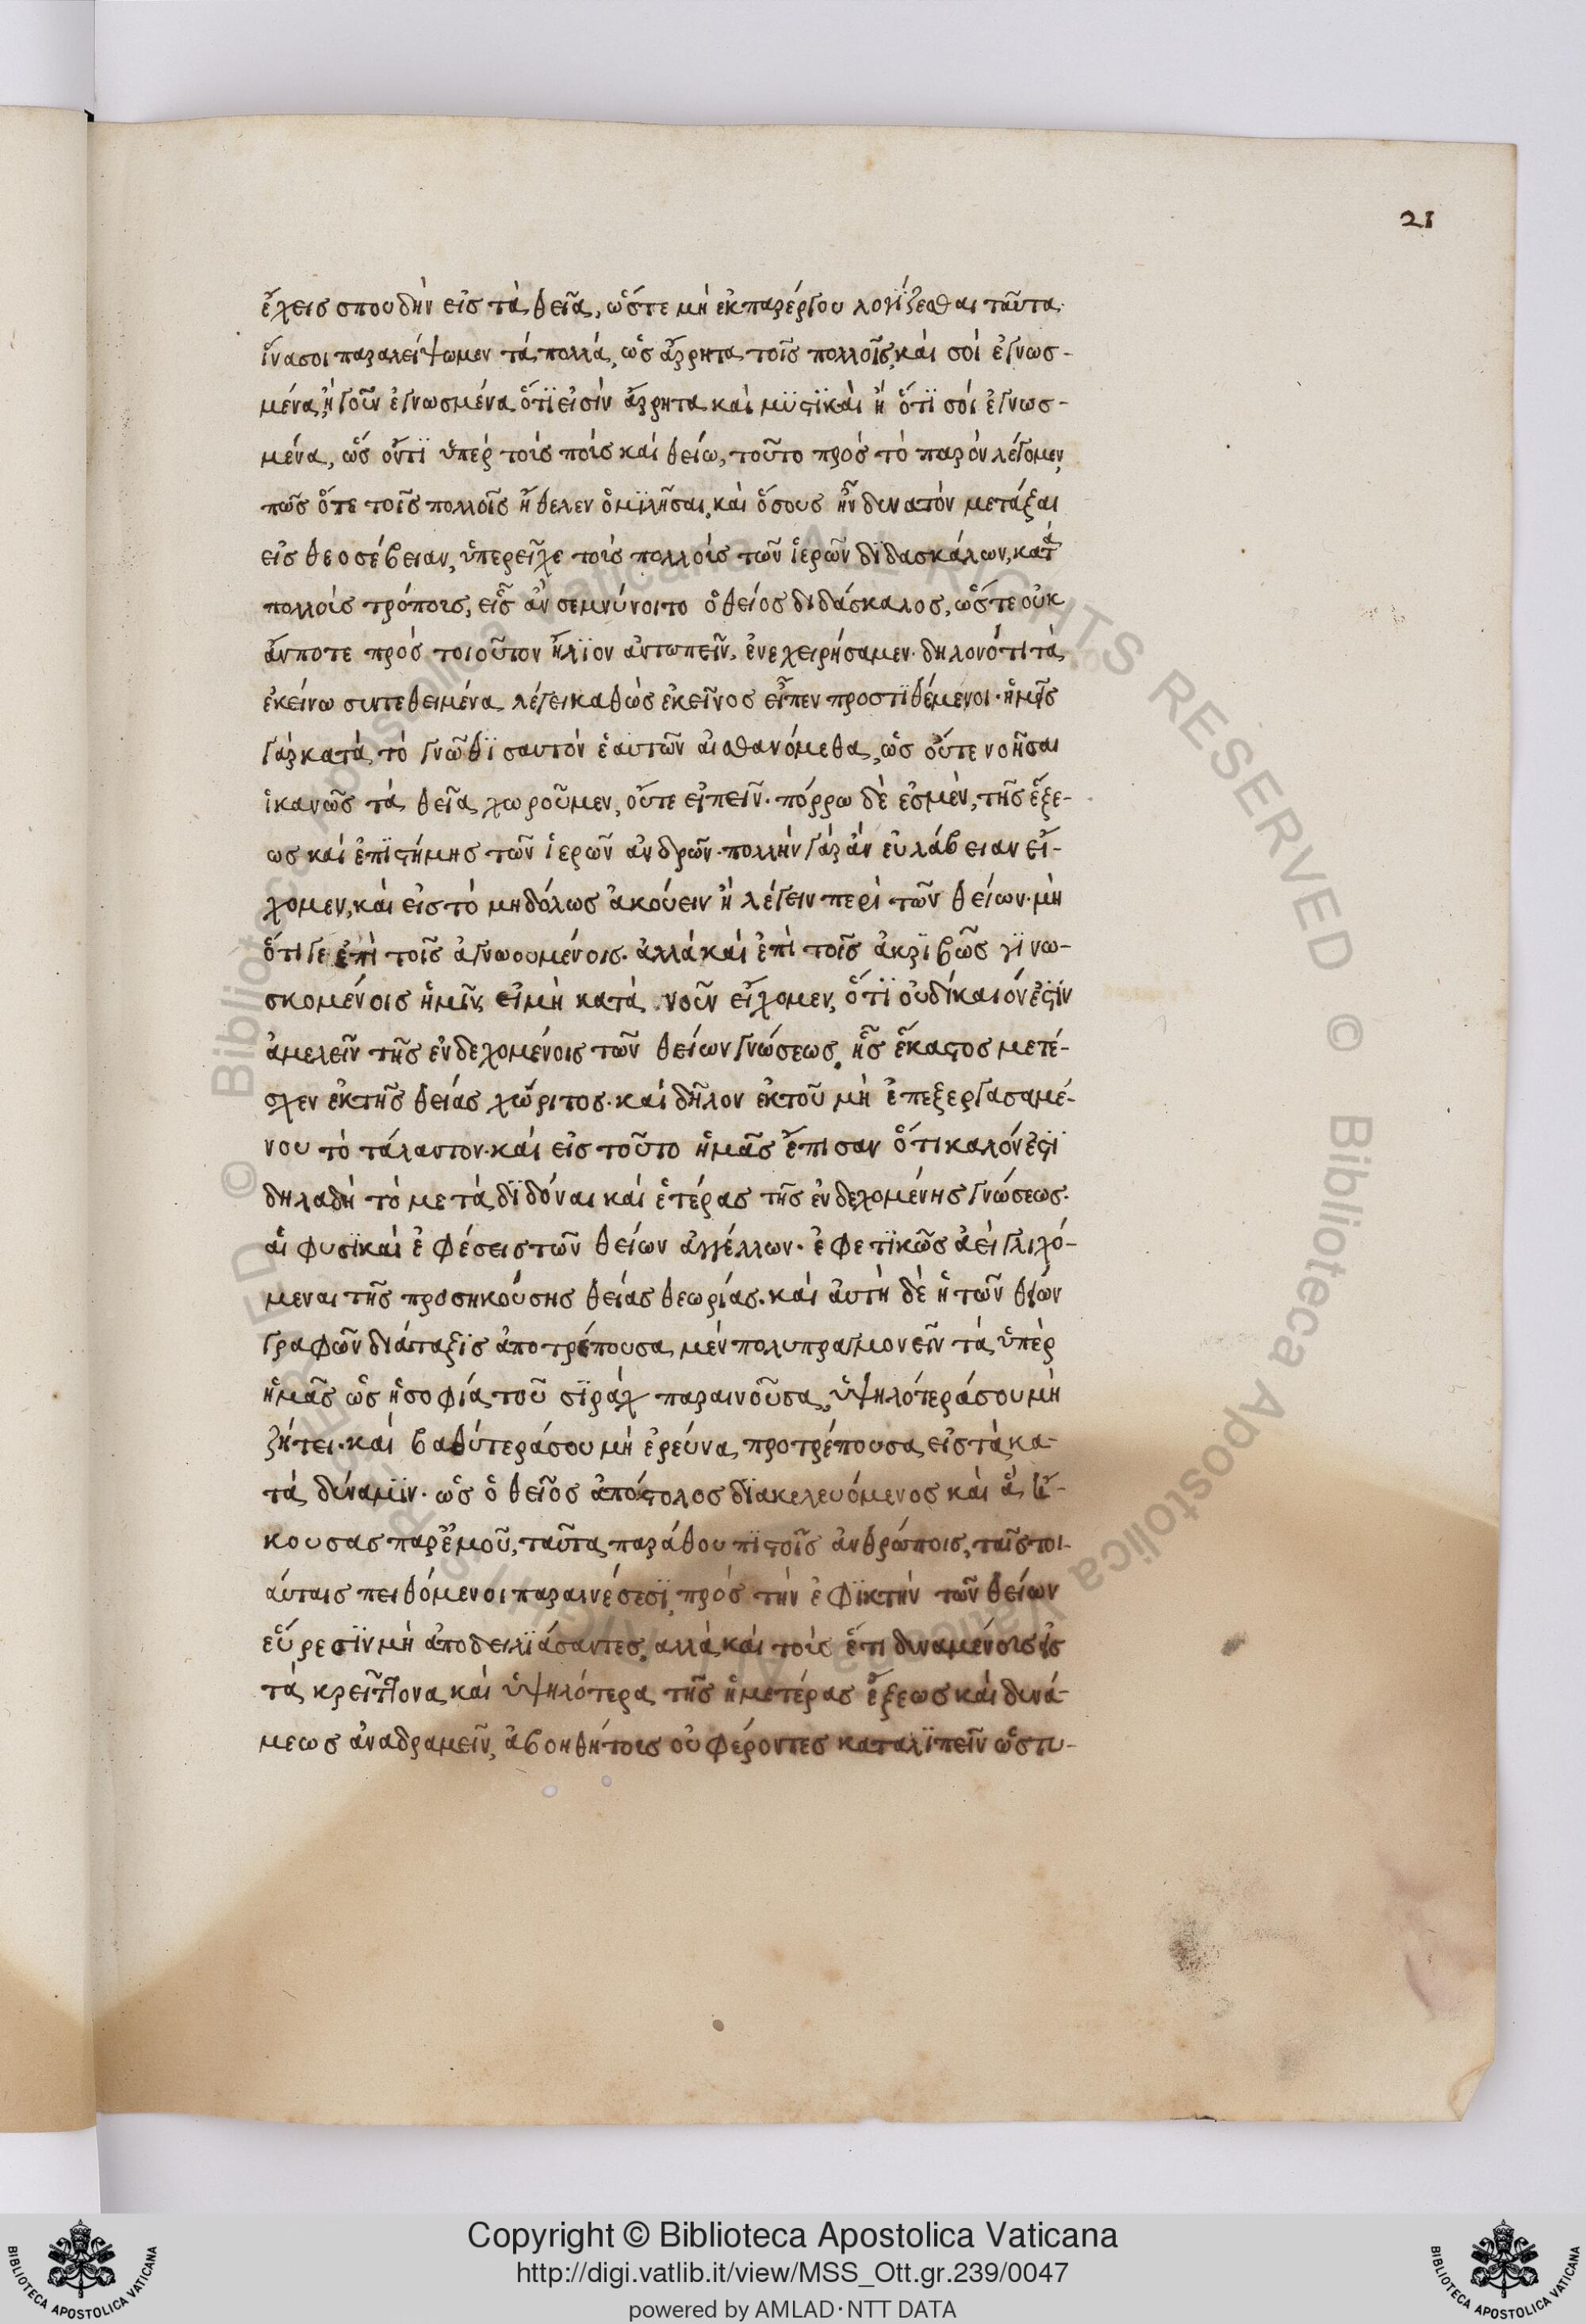 21
ἔχεις σπουδὴν εἰς τὰ θεῖα, ὥστε μὴ ἐκ παρέργου λογΐζεσθαι ταῦτα·
ἵνα σοι παραλείψωμεν τὰ πολλά, ὡς ἄρρητα τοῖς πολλοῖς, καὶ σοὶ ἐγνωσ-
μένα, ἢ γοῦν ἐγνωσμένα ὅτϊ εἰσὶν ἄρρητα καὶ μϋστϊκὰ ἢ ὅτϊ σοὶ ἐγνωσ-
μένα, ὡς ὄντϊ ὑπὲρ τοὺς πολλοὺς καὶ θείω, τοῦτο πρὸς τὸ παρὸν λέγομεν
πῶς ὅτε τοῖς πολλοῖς ἤθελεν ὁμϊλῆσαι, καὶ ὅσους ἦν δυνατὸν μετάξαι
εἰς θεοσέβειαν, ὑπερεῖχε τοὺς πολλοὺς τῶν ἱερῶν δϊδασκάλων, κατὰ
πολλοὺς τρόπους, εἷς ἂν σεμνύνοιτο ὁ θεῖος διδάσκαλος, ὥστε οὐκ
ἄν ποτε πρὸς τοιοῦτον ἥλϊον ἀντωπεῖν, ἐνεχειρήσαμεν· δηλονότι τὰ
ἐκείνω συντεθειμένα λέγει καθὼς ἐκεῖνος εἶπεν προστϊθέμενοι· ἡμεῖς
γὰρ κατὰ τὸ γνῶθϊ σαυτὸν ἑαυτῶν αἰσθανόμεθα, ὡς οὔτε νοῆσαι
ἱκανῶς τὰ θεῖα χωροῦμεν, οὔτε εἰπεῖν· πόρρω δὲ ἐσμὲν, τῆς ἕξε-
ως καὶ ἐπϊστήμης τῶν ἱερῶν ἀνδρῶν· πολλὴν γὰρ ἂν εὐλάβειαν εἴ-
χομεν, καὶ εἰς τὸ μηδόλως ἀκούειν ἢ λέγειν περὶ τῶν θείων· μὴ
ὅτι γε ἐπὶ τοῖς ἀγνωουμένοις· ἀλλὰ καὶ ἐπὶ τοῖς ἀκρϊβῶς γϊνω-
σκομένοις ἡμῖν, εἰ μὴ κατὰ νοῦν εἴχομεν, ὅτϊ οὐ δίκαιόν ἐστϊν
ἀμελεῖν τῆς ἐνδεχομένοις τῶν θείων γνώσεως, ἧς ἕκαστος μετέ-
σχεν ἐκ τῆς θείας χάριτος· καὶ δῆλον ἐκ τοῦ μὴ ἐπεξεργασαμέ-
νου τὸ τάλαντον· καὶ εἰς τοῦτο ἡμᾶς ἔπισαν ὅτι καλόν ἐστϊ
δηλαδὴ τὸ μετὰ δϊδόναι καὶ ἑτέρας τῆς ἐνδεχομένης γνώσεως·
αἱ φυσϊκαὶ ἐφέσεις τῶν θείων ἀγγέλλων· ἐφετϊκῶς ἀεὶ γλιχό-
μεναι τῆς προσηκούσης θείας θεωρίας· καὶ αὐτὴ δὲ ἡ τῶν θείων
γραφῶν διάταξϊς ἀποτρέπουσα μὲν πολυπραγμονεῖν τὰ ὑπὲρ
ἡμᾶς ὡς ἡ σοφία τοῦ σϊρὰχ παραινοῦσα, ὑψηλότερά σου μὴ
ζήτει· καὶ βαθύτερά σου μὴ ἐρεύνα, προτρέπουσα εἰς τὰ κα-
τὰ δύναμϊν· ὡς ὁ θεῖος ἀπόστολος δϊακελευόμενος καὶ ἃ ἤ-
κουσας παρ' ἐμοῦ, ταῦτα παράθου πϊστοῖς ἀνθρώποις, ταῖς τοι-
αύταις πειθόμενοι παραινέσεσϊ, πρὸς τὴν ἐφϊκτὴν τῶν θείων
εὕρεσϊν μὴ ἀποδειλϊάσαντες, ἀλλὰ καὶ τοὺς ἔτι δυναμένους εἰς
τὰ κρείττονα καὶ ὑψηλότερα τῆς ἡμετέρας ἕξεως καὶ δυνά-
μεως ἀναδραμεῖν, ἀβοηθήτους οὐ φέροντες καταλϊπεῖν ὥσπερ
© Biblioteca Apostolica Vaticana
ALL RIGHTS RESERVED
© Biblioteca Apostolica Vaticana
ALL RIGHTS RESERVED
BIBLIOTECA APOSTOLICA VATICANA
Copyright © Biblioteca Apostolica Vaticana
http://digi.vatlib.it/view/MSS_Ott.gr.239/0047
powered by AMLAD·NTT DATA
BIBLIOTECA APOSTOLICA VATICANA